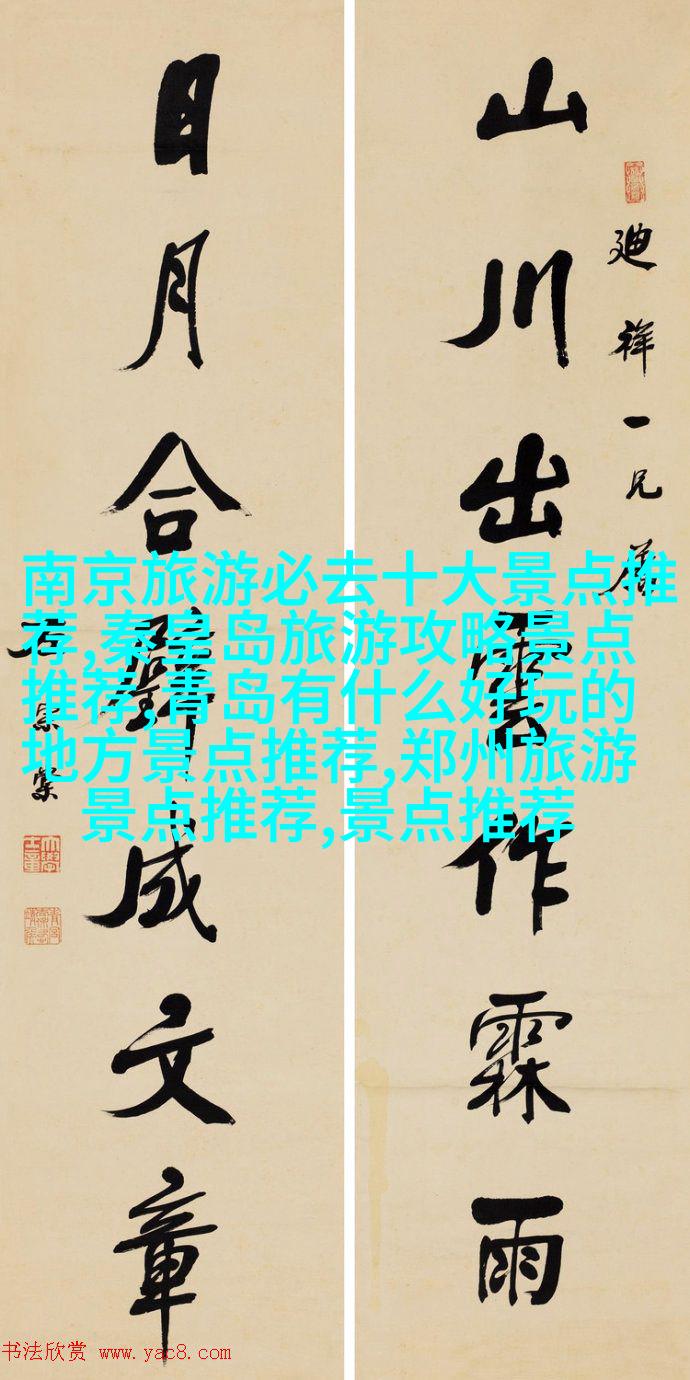 廸祥一兄屬
山川出雲作霖雨
日月合璧成文章
南京旅游必去十大景点推
荐,秦皇岛旅游攻略景点
推荐,青岛有什么好玩的
地方景点推荐,郑州旅游
景点推荐,景点推荐
书法欣赏 www.yac8.com